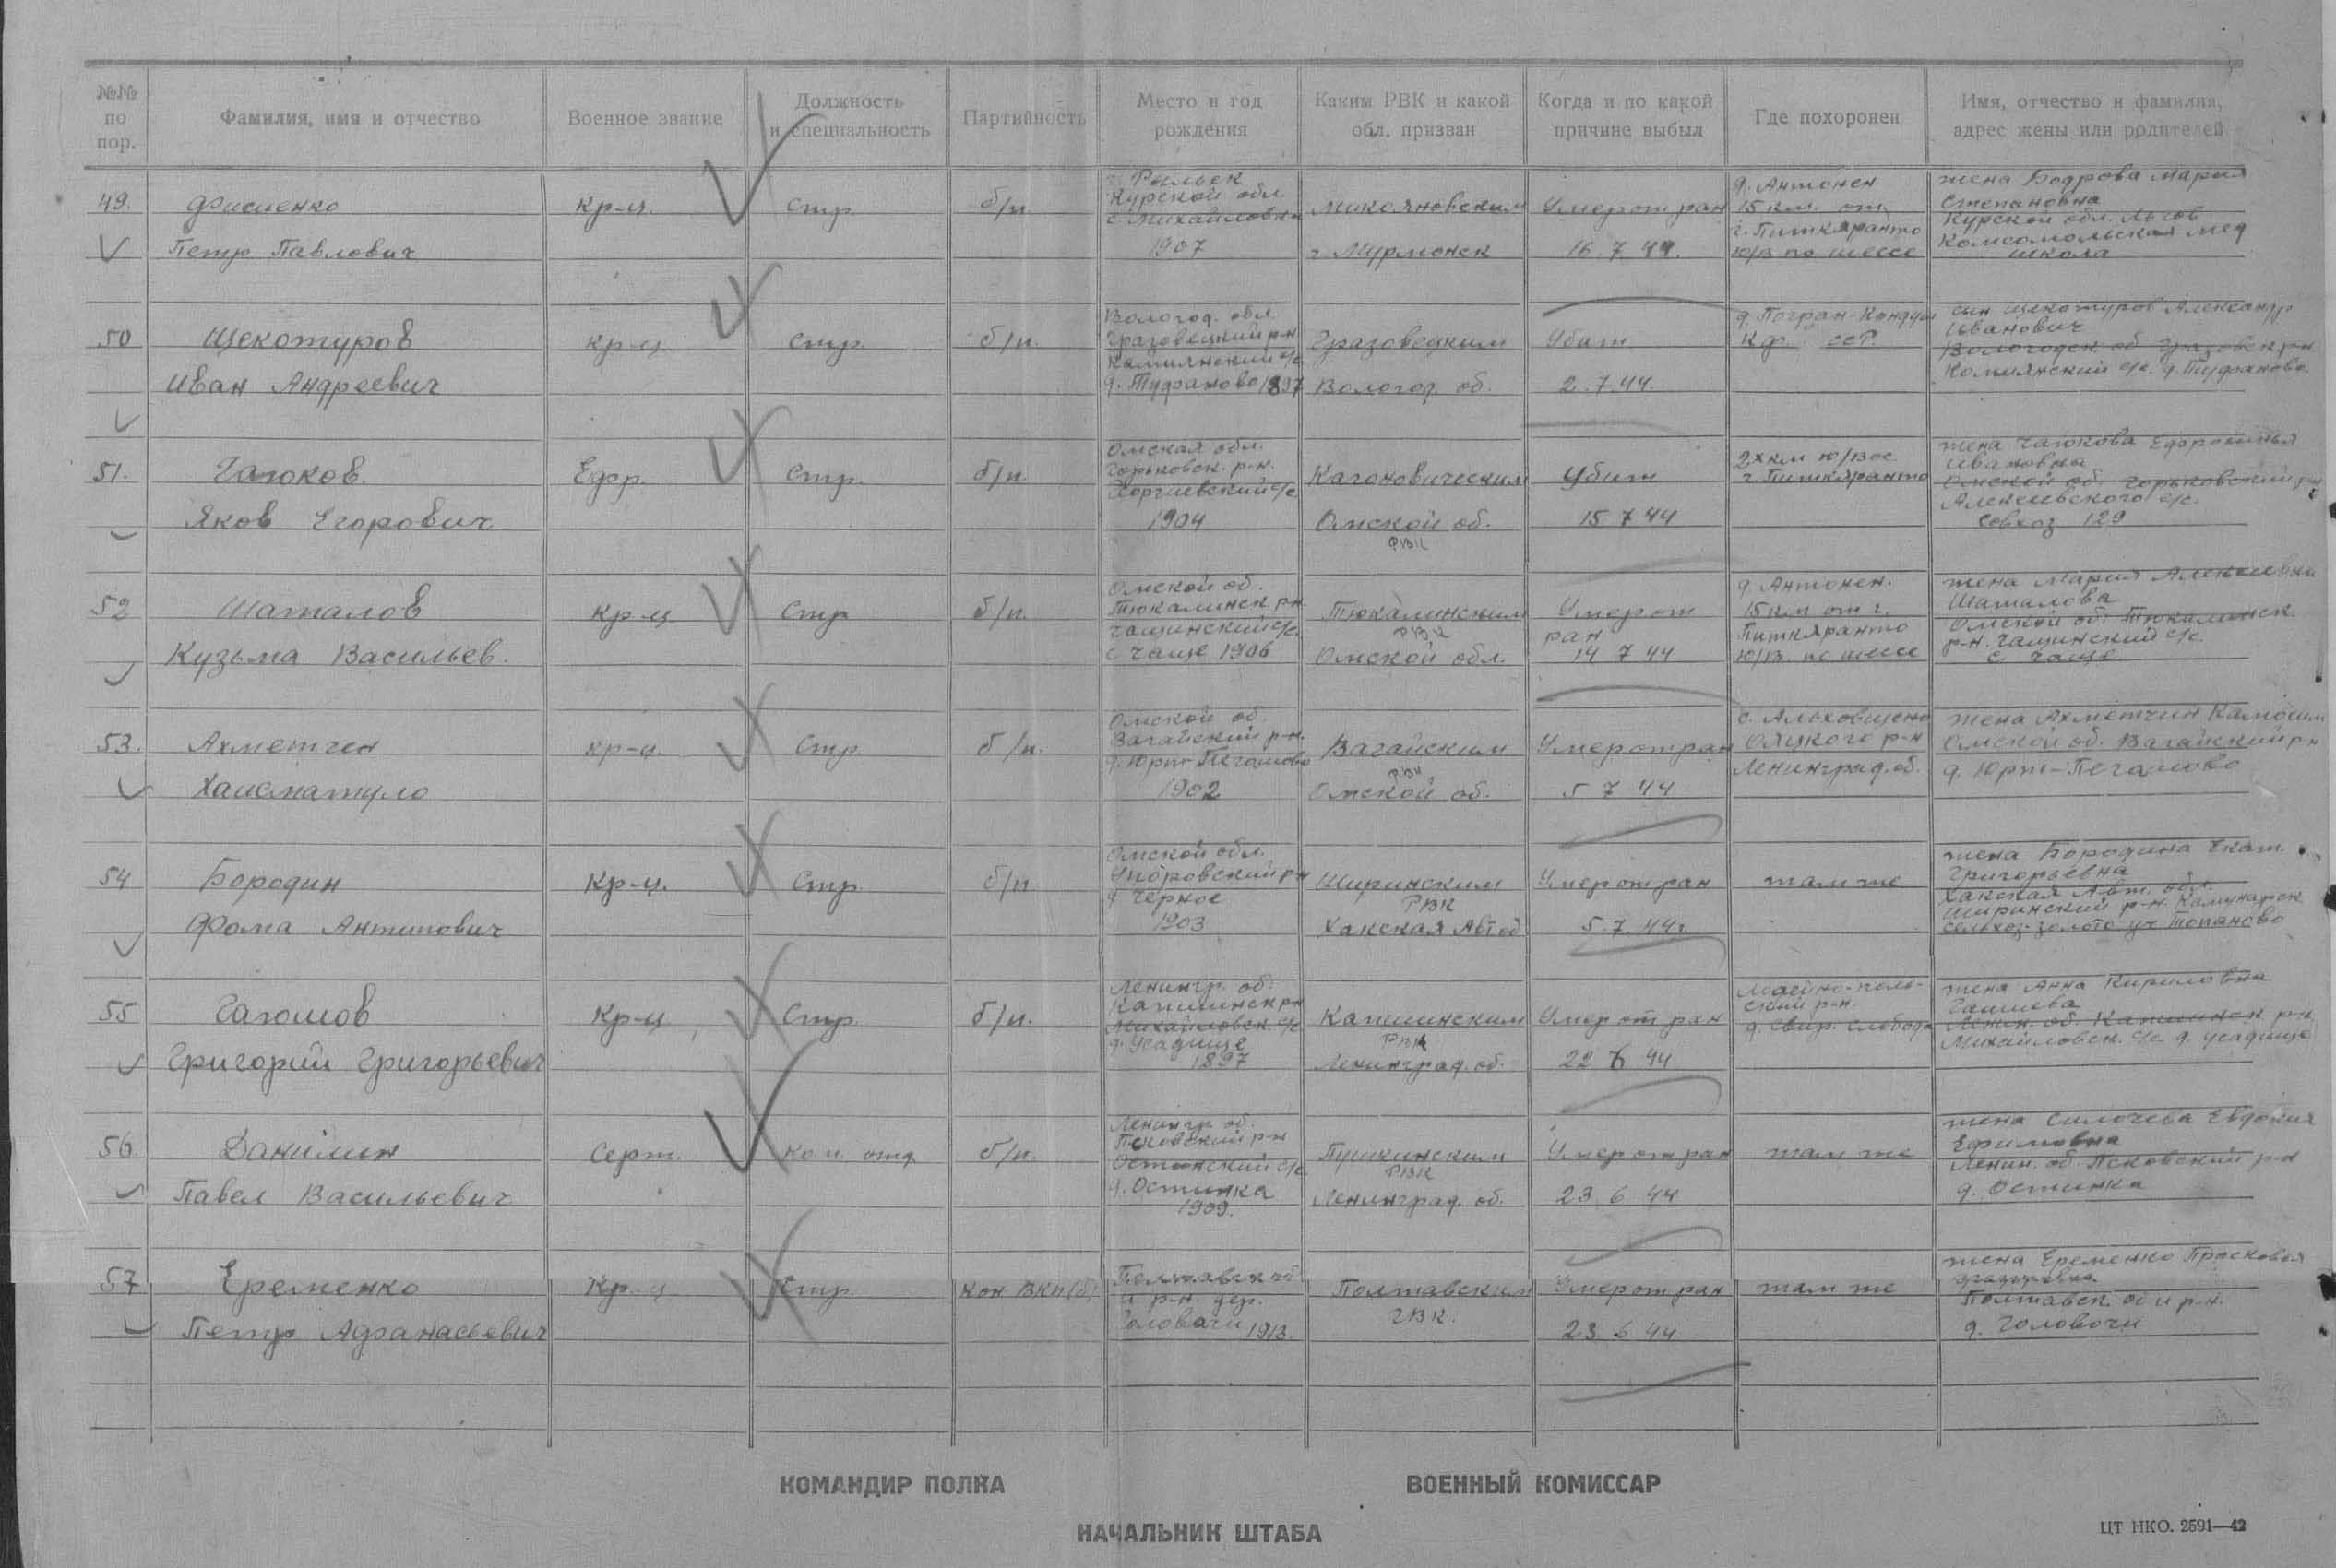 №№ по пор.
Фамилия, имя и отчество
Военное звание
Должность и специальность
Партийность
Место и год рождения
Каким РВК и какой обл. призван
Когда и по какой причине выбыл
Где похоронен
Имя, отчество и фамилия, адрес жены или родителей
49.
Фисенко
Петр Павлович
кр-ц.
Стр.
б/п.
г. Рыльск
Курской обл.
с Михайловка
1907
Микояновским
г Мурманск
Умер от ран
16.7.44.
д. Антонен
15 км. от
г. Питкяранто
ю/в по шоссе
жена Бодрова Мария
Степановна
Курской обл. Льгов
Комсомольская мед
школа
50
Щекотуров
Иван Андреевич
кр-ц
Стр.
б/п.
Вологод. обл
Грязовецкий р-н
д. Туфаново 1897
Грязовецким
Вологод. об.
Убит
2.7.44.
д. Погран-Кондуши
К.ф. ССР.
сын Щекотуров Александр
Иванович
Вологодск об Грязовек рн
51.
Яков Егорович
Ефр.
Стр.
б/п.
Омская обл.
Горьковск. р-н.
1904
Кагоновическим
Омской об.
РВК
Убит
15 7 44
2х км ю/вос
г Питкяранто
жена
Ивановна
Омской об. Горьковский р-н
Алексеевского с/с.
Совхоз 129
52
Шаталов
Кузьма Васильев.
кр-ц
Стр
б/п.
Омской об.
Тюкалинск рн.
Чащинский с/с.
с Чаще 1906
Тюкалинским
РВК
Омской обл.
Умер от
ран
14 7 44
д. Антонен.
15 км от г.
Питкяранто
ю/в. по шоссе
жена Мария Алексеевна
Шаталова
Омской об. Тюкалинск.
р-н. Чащинский с/с.
с Чаще
53.
Ахметчен
кр-ц.
Стр.
б/п.
Омской об.
Вагайский р-н.
1902
Вагайским
РВК
Омской об.
Умер от ран
5 7 44
Ленинград. об.
жена Ахметчин
Омской об. Вагайский рн
54
Бородин
Фома Антипович
Кр-ц.
Стр.
б/п
Омской обл.
Упоровский рн
д Черное
1903
Ширинским
РВК
Хакская Авт об
Умер от ран
5.7.44г.
там же
жена Бородина Екат.
Григорьевна
Хакская Авт. обл.
Ширинский р-н.
55
Григорий Григорьевич
Кр-ц
Стр.
б/п.
Ленингр. об.
Михайловск. с/с
д. Усадище
1897
РВК
Ленинград. об.
Умер от ран
22 6 44
ский р-н.
д. Свир. Слобода
жена Анна Кириловна
Михайловск. с/с. д. Усадище
56
Данилин
Павел Васильевич
Серж.
Ком. отд.
б/п.
Ленингр. об.
Псковский р-н
д. Остинка
1909.
Пушкинским
РВК
Ленинград. об.
Умер от ран
23 6 44
там же
жена Силочева Евдокия
Ефимовна
Ленин. об. Псковский р-н
д. Остинка
57
Еременко
Петр Афанасьевич
Кр-ц
Стр.
Кан ВКП(б)
и р-н. дер.
Головачи 1913.
Полтавским
ГВК.
Умер от ран
23 6 44
там же
жена Еременко Прасковья
Полтавск. об и р-н.
д. Головочи
КОМАНДИР ПОЛКА
ВОЕННЫЙ КОМИССАР
НАЧАЛЬНИК ШТАБА
ЦТ НКО. 2591—42